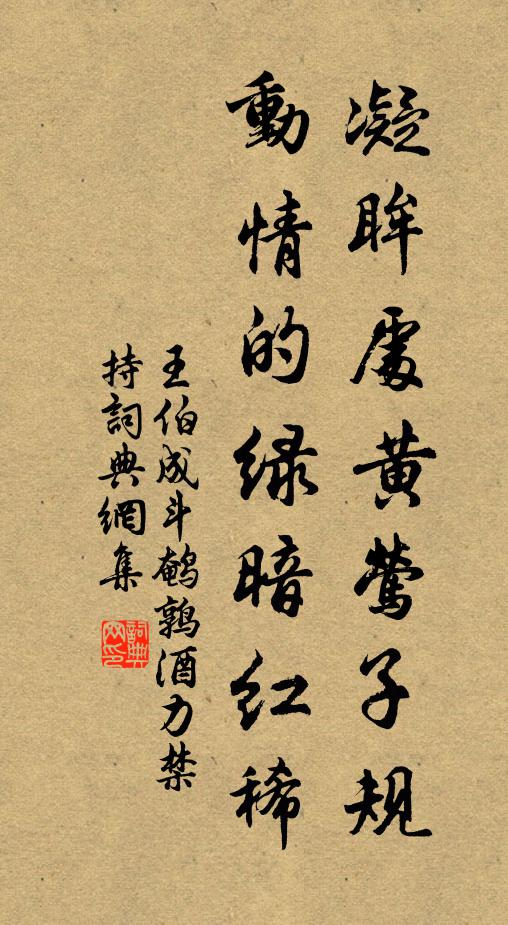 凝眸處黄鶯子規
動情的緑暗红稀
王伯成斗鹌鹑酒力禁
持詞典網集
詞典
网印